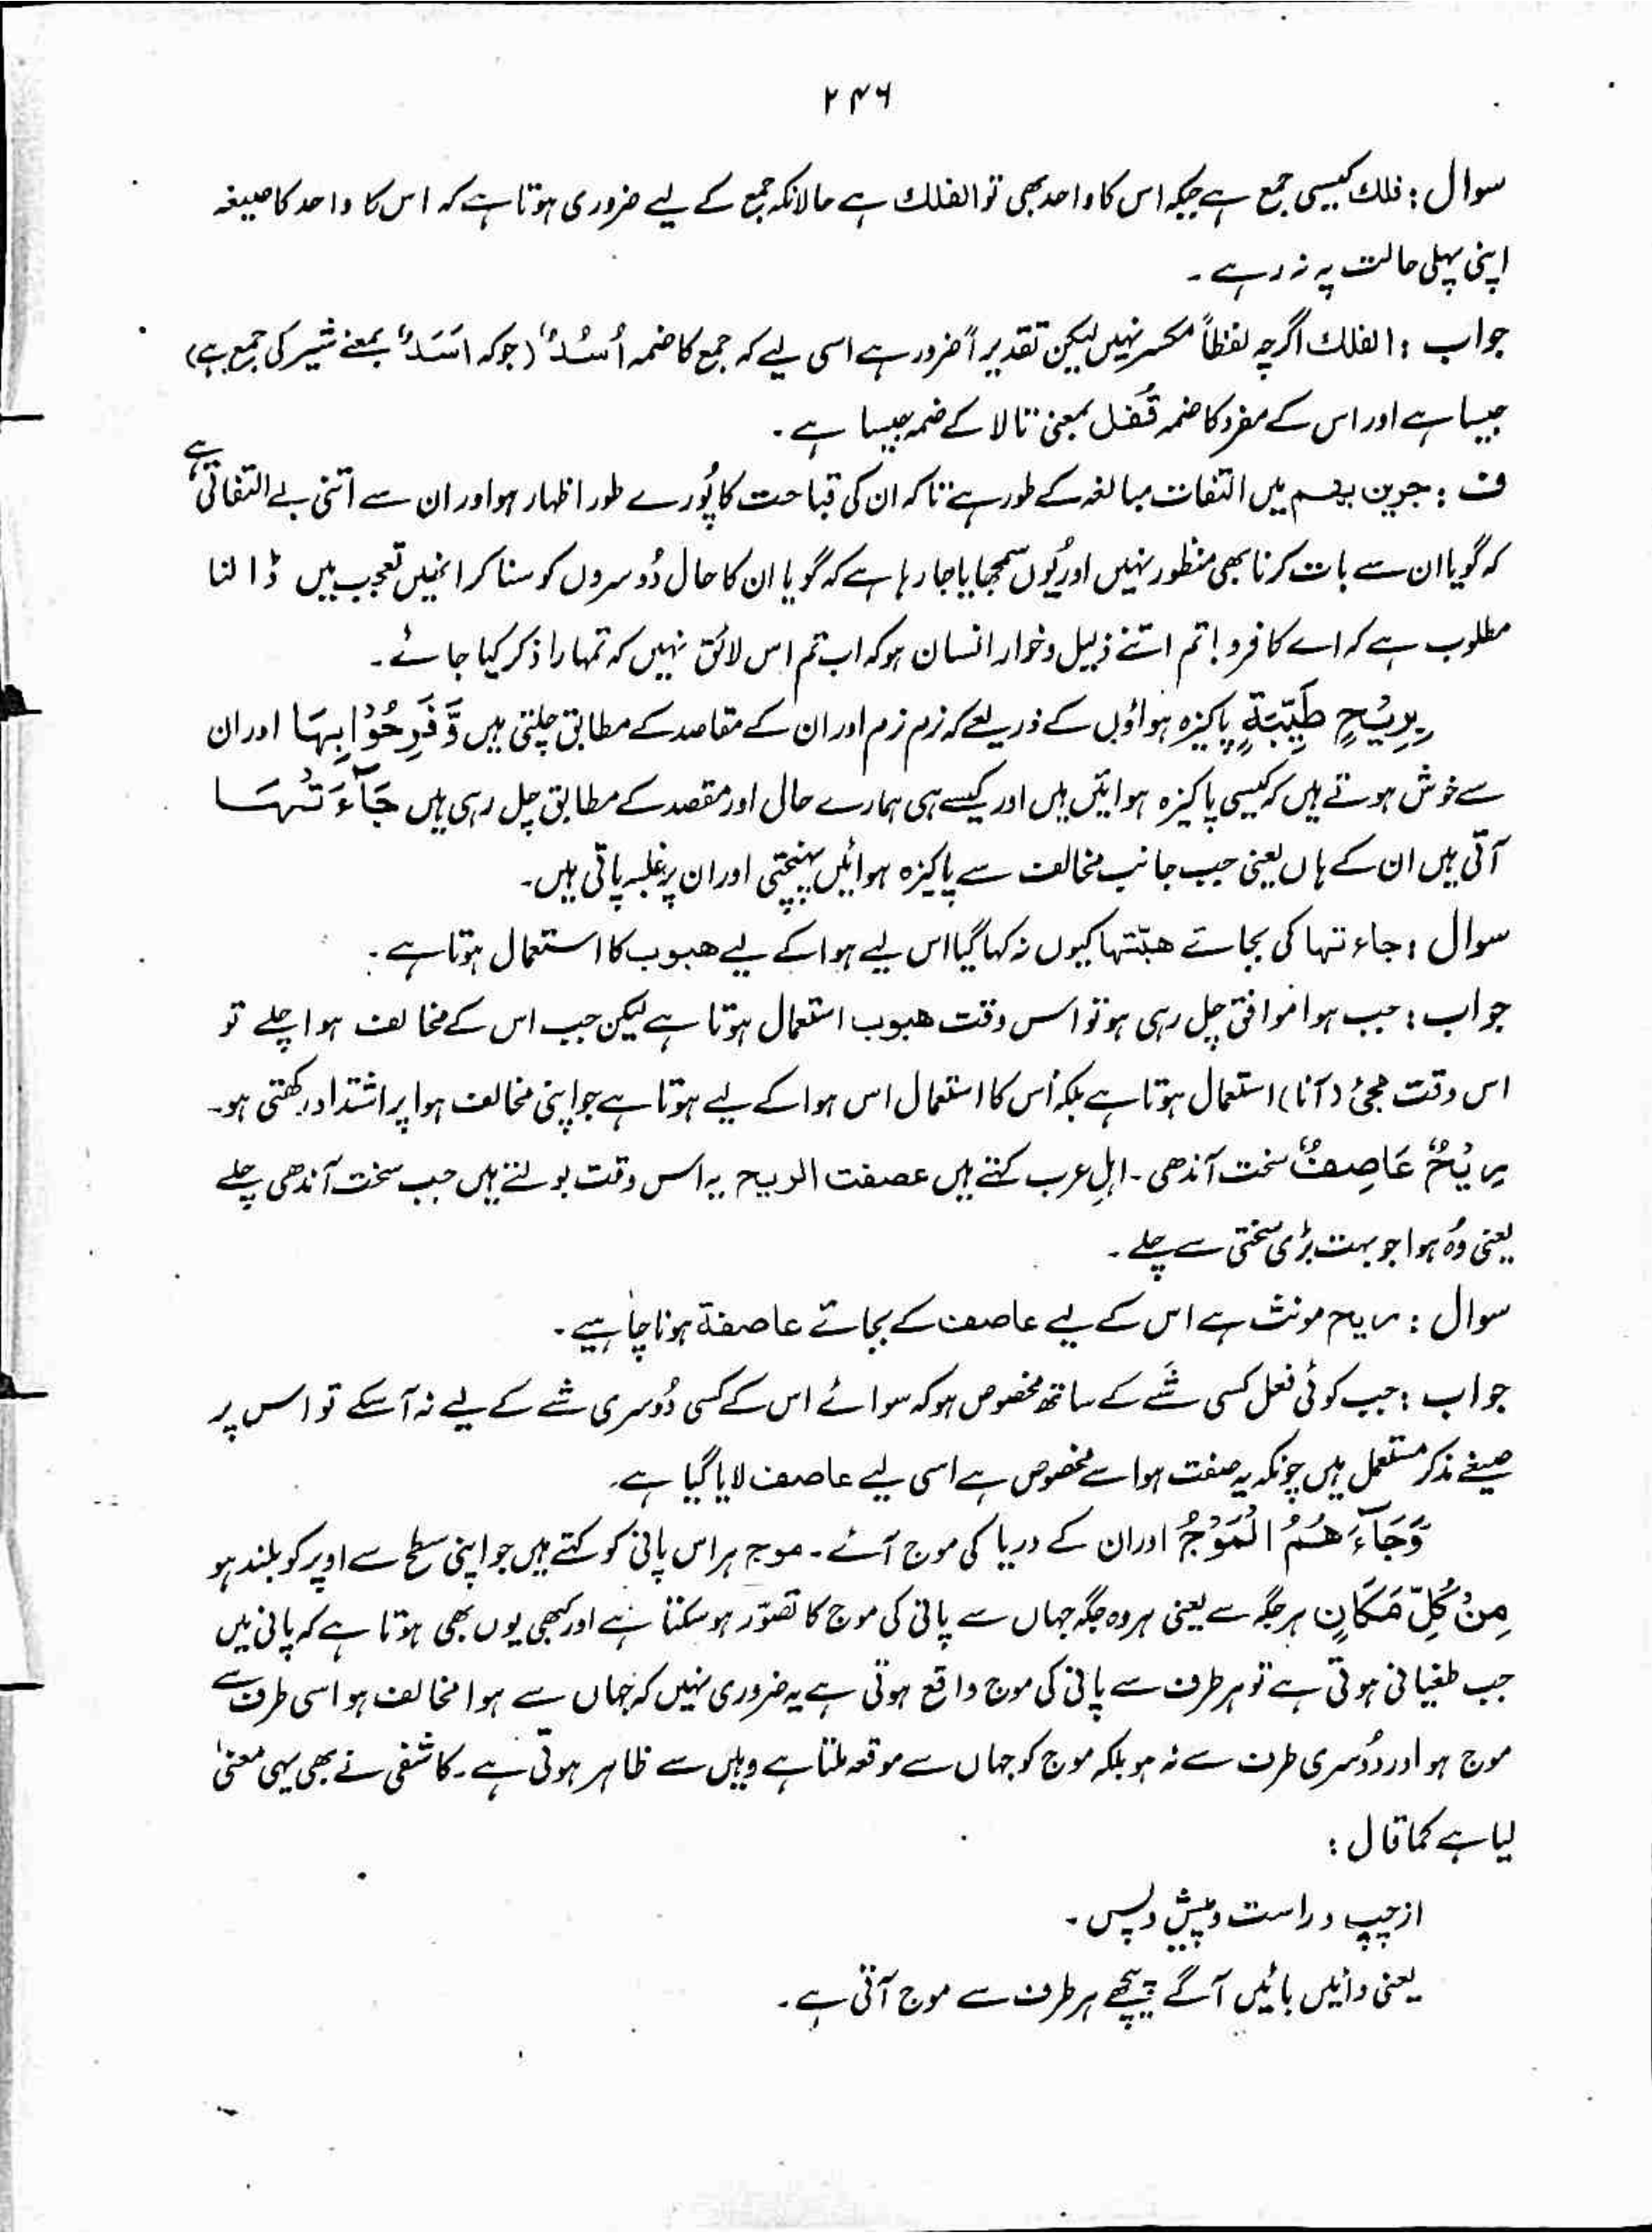 ۲۴۶
سوال : فلك کیسی جمع ہے جبکہ اس کا واحد بھی تو الفلك ہے حالانکہ جمع کے لیے ضروری ہوتا ہے کہ اس کا واحد کا صیغہ
اپنی پہلی حالت پہ نہ رہے ۔
جواب : الفلك اگرچہ لفظاً مکسر نہیں لیکن تقدیراً ضرور ہے اسی لیے کہ جمع کا ضمہ اُسُدٌ (جو کہ اَسَدٌ بمعنے شیر کی جمع ہے)
جیسا ہے اور اس کے مفرد کا ضمہ قُفل بمعنی تالا کے ضمہ جیسا ہے ۔
ف : جرین بھم میں التفات مبالغہ کے طور ہے تاکہ ان کی قباحت کا پُورے طور اظہار ہو اور ان سے اتنی بے التفاتی ہے
کہ گویا ان سے بات کرنا بھی منظور نہیں اور یُوں سمجھایا جا رہا ہے کہ گویا ان کا حال دُوسروں کو سنا کر انہیں تعجب میں ڈالنا
مطلوب ہے کہ اے کافرو! تم اتنے ذلیل و خوار انسان ہو کہ اب تم اس لائق نہیں کہ تمہارا ذکر کیا جائے ۔
بِرِیْحٍ طَیِّبَةٍ پاکیزہ ہواؤں کے ذریعے کہ نرم نرم اور ان کے مقاصد کے مطابق چلتی ہیں وَّفَرِحُوْا بِهَا اور ان
سے خوش ہوتے ہیں کہ کیسی پاکیزہ ہوائیں ہیں اور کیسے ہی ہمارے حال اور مقصد کے مطابق چل رہی ہیں جَآءَتْهَا
آتی ہیں ان کے ہاں یعنی جب جانب مخالف سے پاکیزہ ہوائیں پہنچتی اور ان پر غلبہ پاتی ہیں۔
سوال : جاءتها کی بجائے هبّتها کیوں نہ کہا گیا اس لیے ہوا کے لیے هبوب کا استعمال ہوتا ہے ۔
جواب : جب ہوا موافق چل رہی ہو تو اس وقت هبوب استعمال ہوتا ہے لیکن جب اس کے مخالف ہوا چلے تو
اس وقت مجیٔ (آنا) استعمال ہوتا ہے بلکہ اُس کا استعمال اس ہوا کے لیے ہوتا ہے جو اپنی مخالف ہوا پر اشتداد رکھتی ہو۔
رِیْحٌ عَاصِفٌ سخت آندھی ۔ اہلِ عرب کہتے ہیں عصفت الریح یہ اس وقت بولتے ہیں جب سخت آندھی چلے
یعنی وُہ ہوا جو بہت بڑی سختی سے چلے ۔
سوال : ریح مونث ہے اس کے لیے عاصف کے بجائے عاصفة ہونا چاہیے ۔
جواب : جب کوئی فعل کسی شَے کے ساتھ مخصوص ہو کہ سوائے اس کے کسی دُوسری شے کے لیے نہ آسکے تو اس پر
صیغے مذکر مستعمل ہیں چونکہ یہ صفت ہوا سے مخصوص ہے اسی لیے عاصف لایا گیا ہے۔
وَّجَآءَهُمُ الْمَوْجُ اور ان کے دریا کی موج آئے ۔ موج ہر اس پانی کو کہتے ہیں جو اپنی سطح سے اوپر کو بلند ہو
مِنْ كُلِّ مَكَانٍ ہر جگہ سے یعنی ہر وہ جگہ جہاں سے پانی کی موج کا تصوّر ہو سکتا ہے اور کبھی یوں بھی ہوتا ہے کہ پانی میں
جب طغیانی ہوتی ہے تو ہر طرف سے پانی کی موج واقع ہوتی ہے یہ ضروری نہیں کہ جہاں سے ہوا مخالف ہو اسی طرف سے
موج ہو اور دُوسری طرف سے نہ ہو بلکہ موج کو جہاں سے موقعہ ملتا ہے وہیں سے ظاہر ہوتی ہے ۔ کاشفی نے بھی یہی معنیٰ
لیا ہے کما قال :
از چپ و راست و پیش و پس ۔
یعنی دائیں بائیں آگے پیچھے ہر طرف سے موج آتی ہے ۔